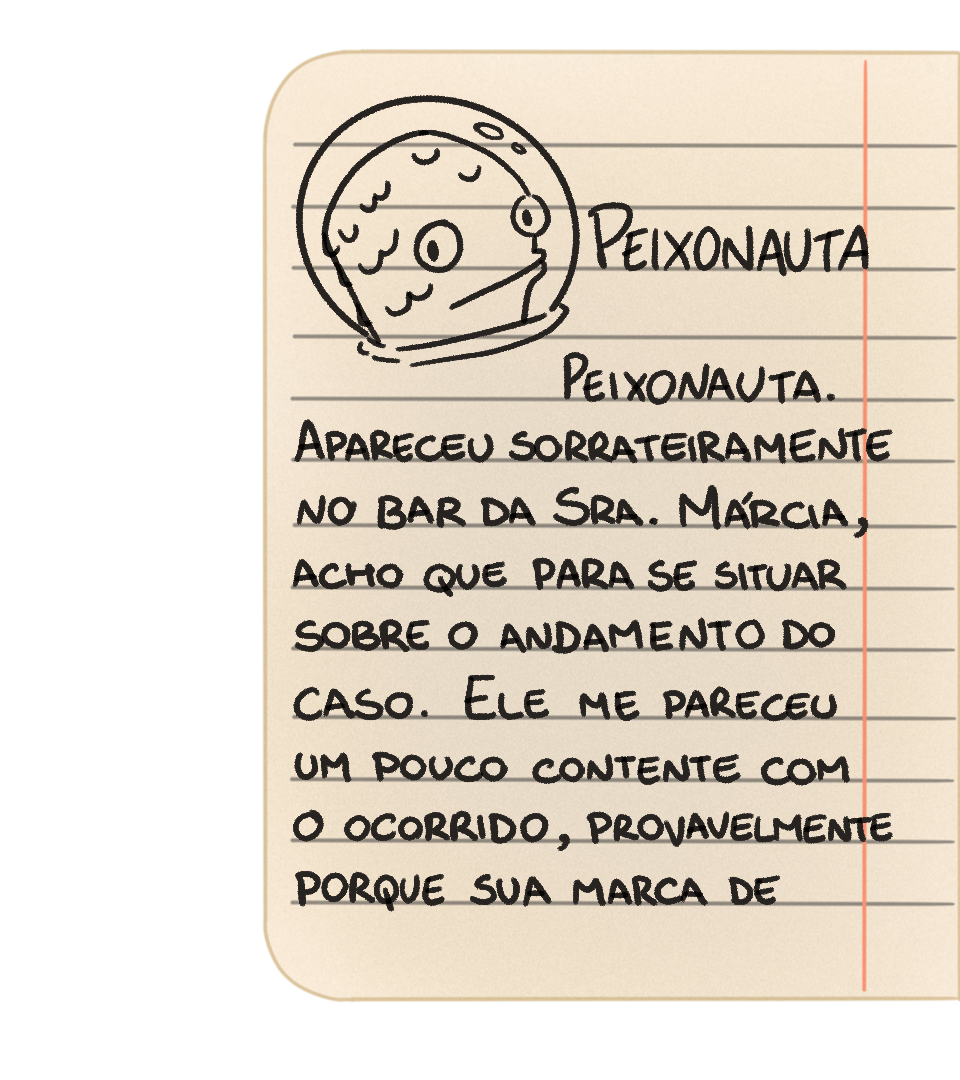 Peixonauta
Peixonauta.
Apareceu sorrateiramente
no bar da Sra. Márcia,
acho que para se situar
sobre o andamento do
caso. Ele me pareceu
um pouco contente com
o ocorrido, provavelmente
porque sua marca de